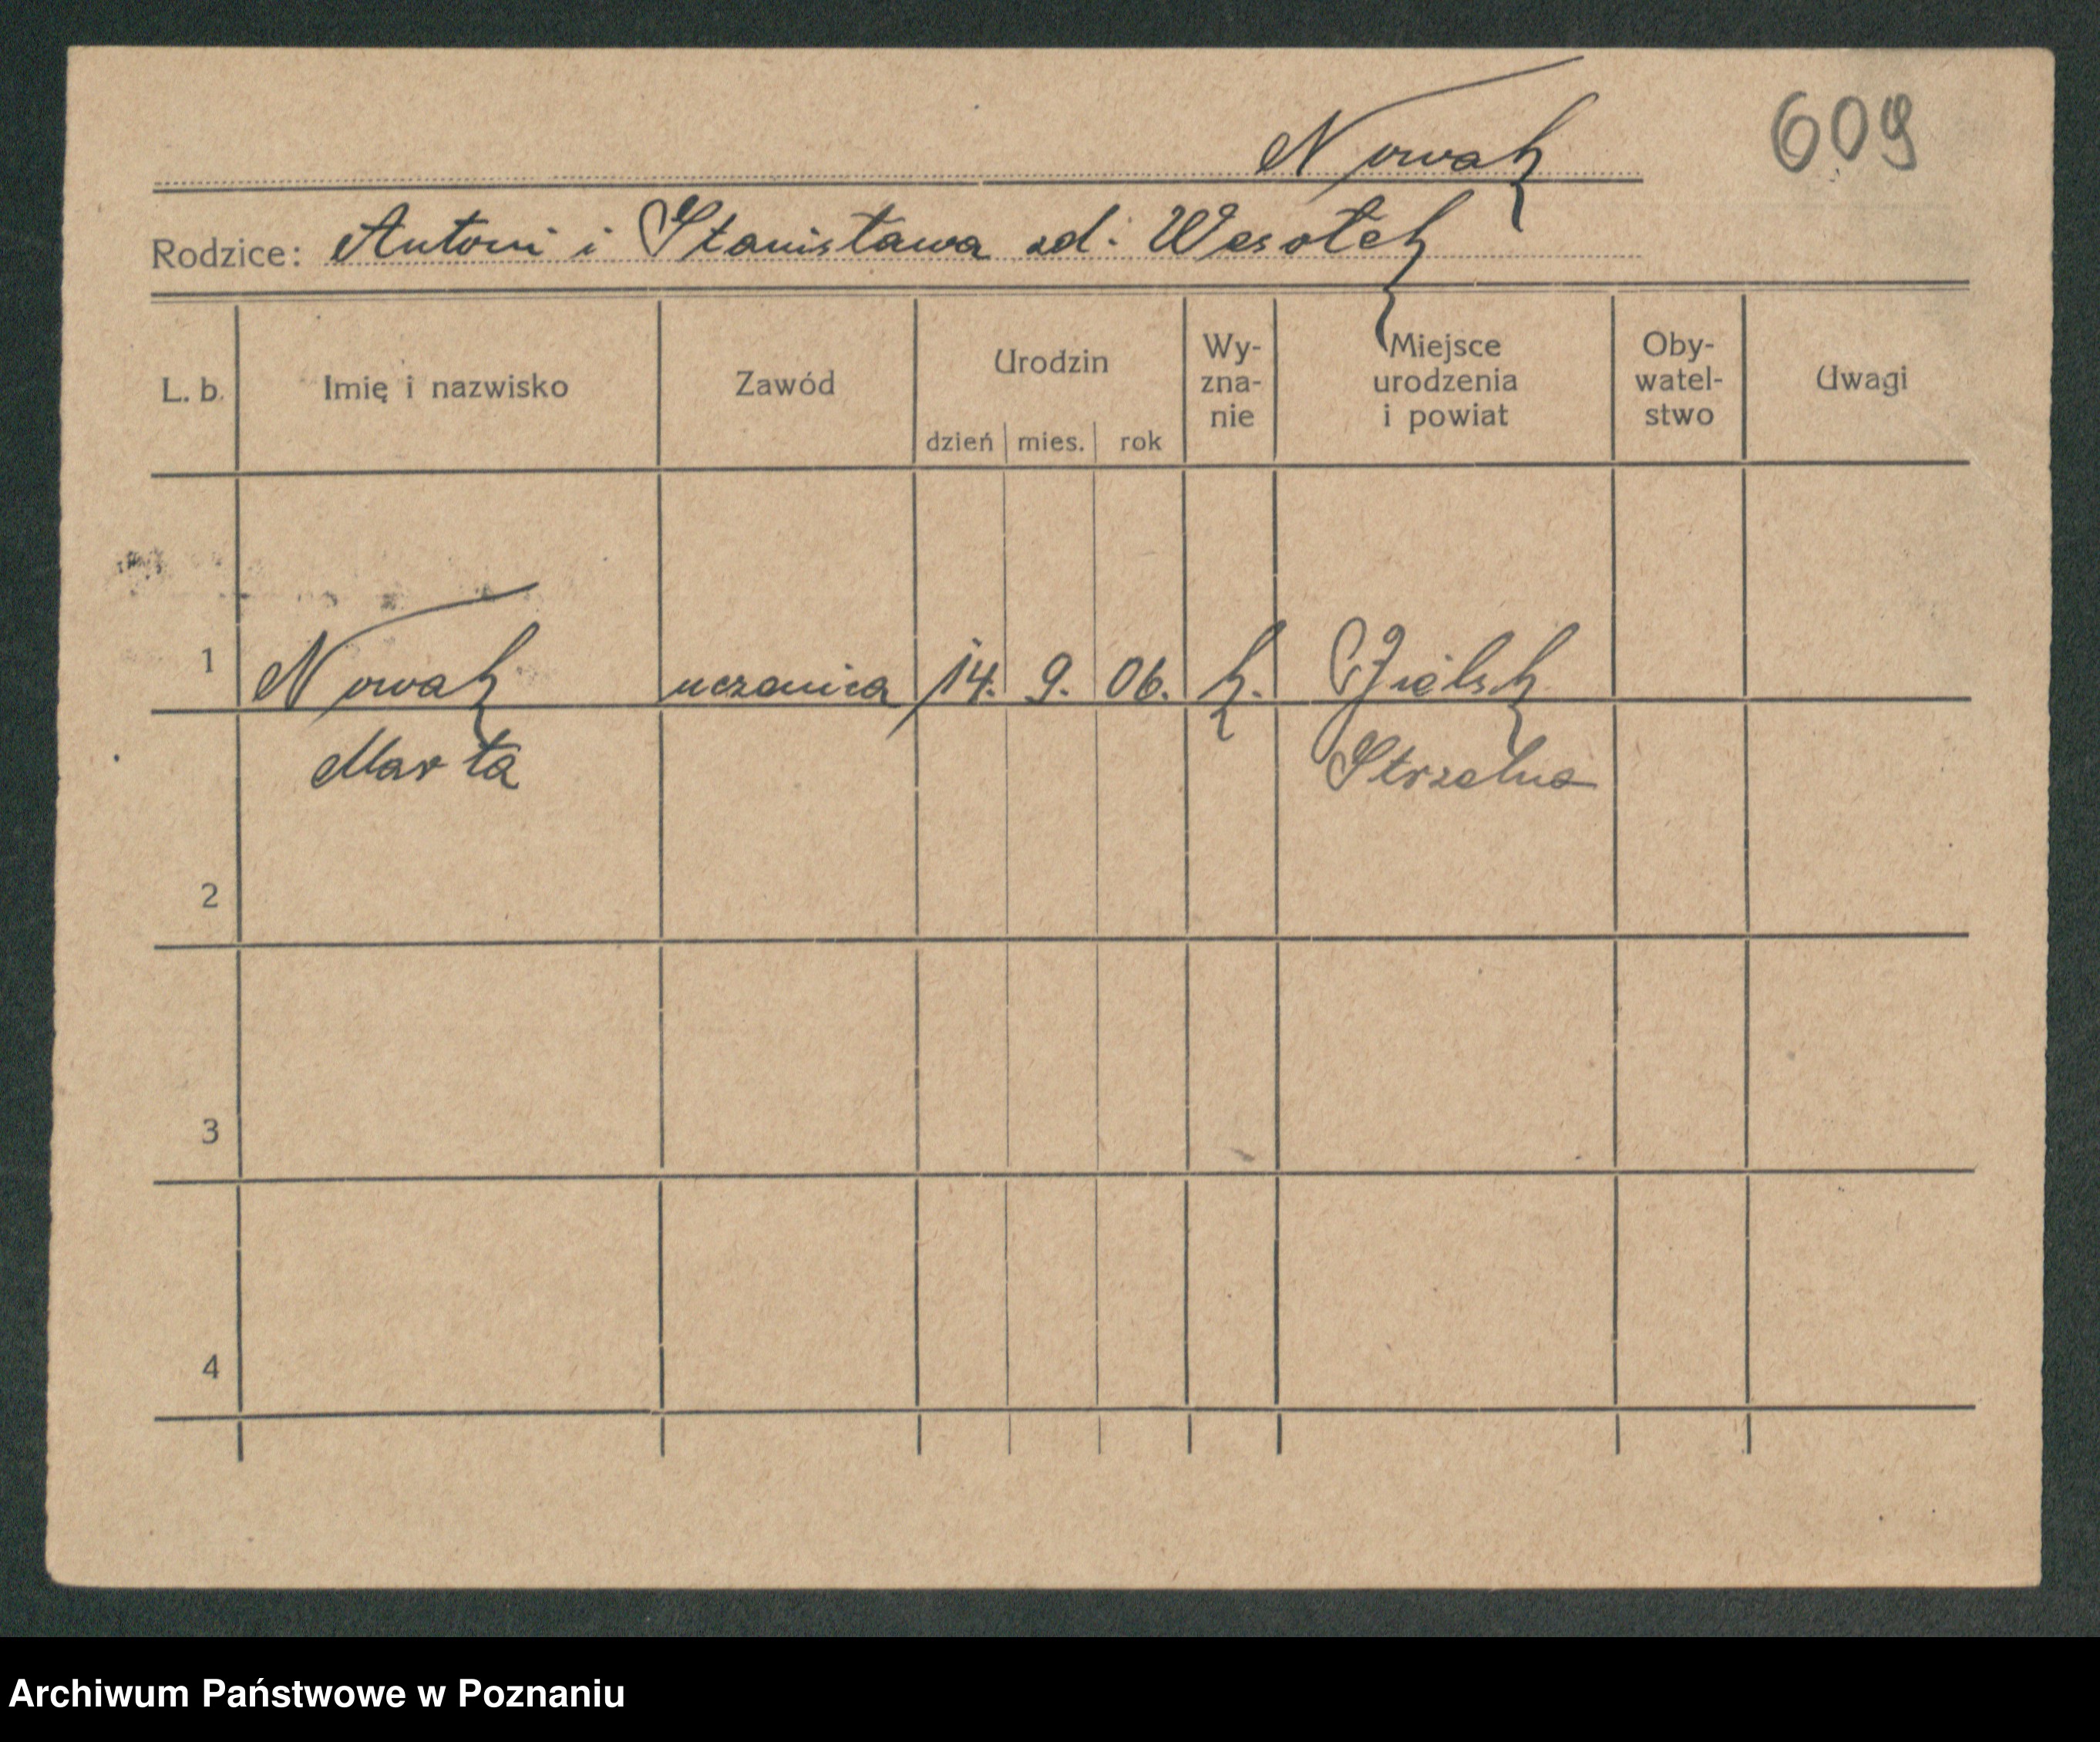 Nowak
609
Rodzice: Antoni i Stanisława zd. Wesołek
L. b.
Imię i nazwisko
Zawód
Urodzin
dzień mies. rok
Wy-
zna-
nie
Miejsce
urodzenia
i powiat
Oby-
watel-
stwo
Uwagi
1 Nowak uczenica 14. 9. 06. k.
Marta Strzelno
2
3
4
Archiwum Państwowe w Poznaniu